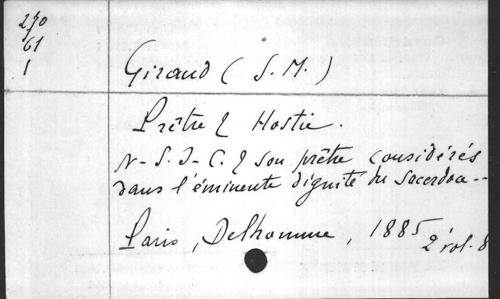 270
61
1
Giraud (S. M.)
Prêtre & Hostie.
N-S. J-C. & son prêtre considérés
dans l'éminente dignité du Sacerdoa--
Paris, Delhomme, 1885
2 vol. 8